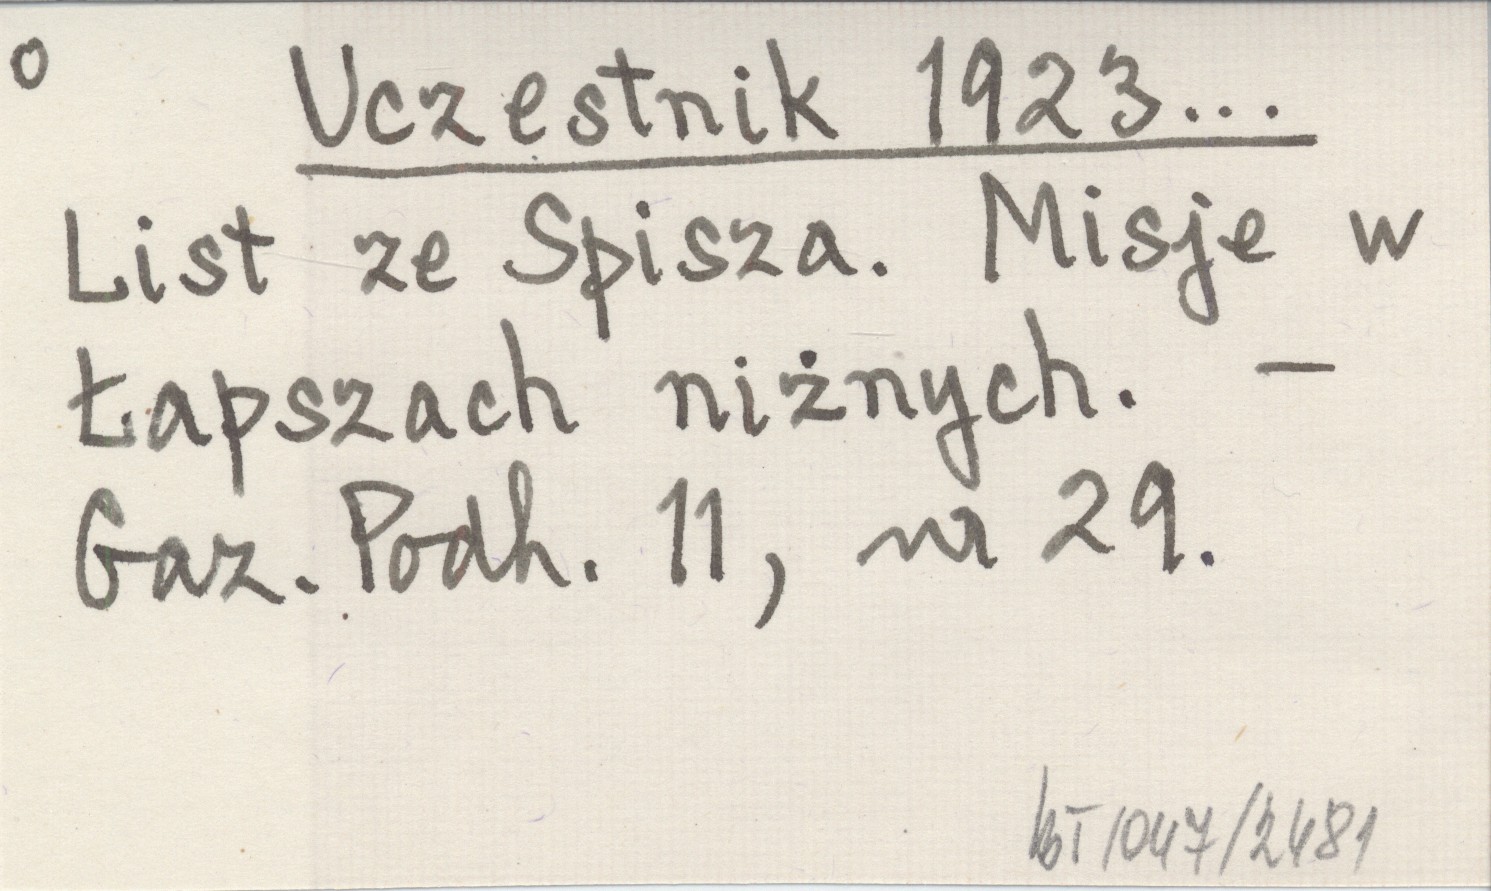 o
Uczestnik 1923...
List ze Spisza. Misje w
Łapszach niżnych. —
Gaz. Podh. 11, nr 29.
bT/047/2481